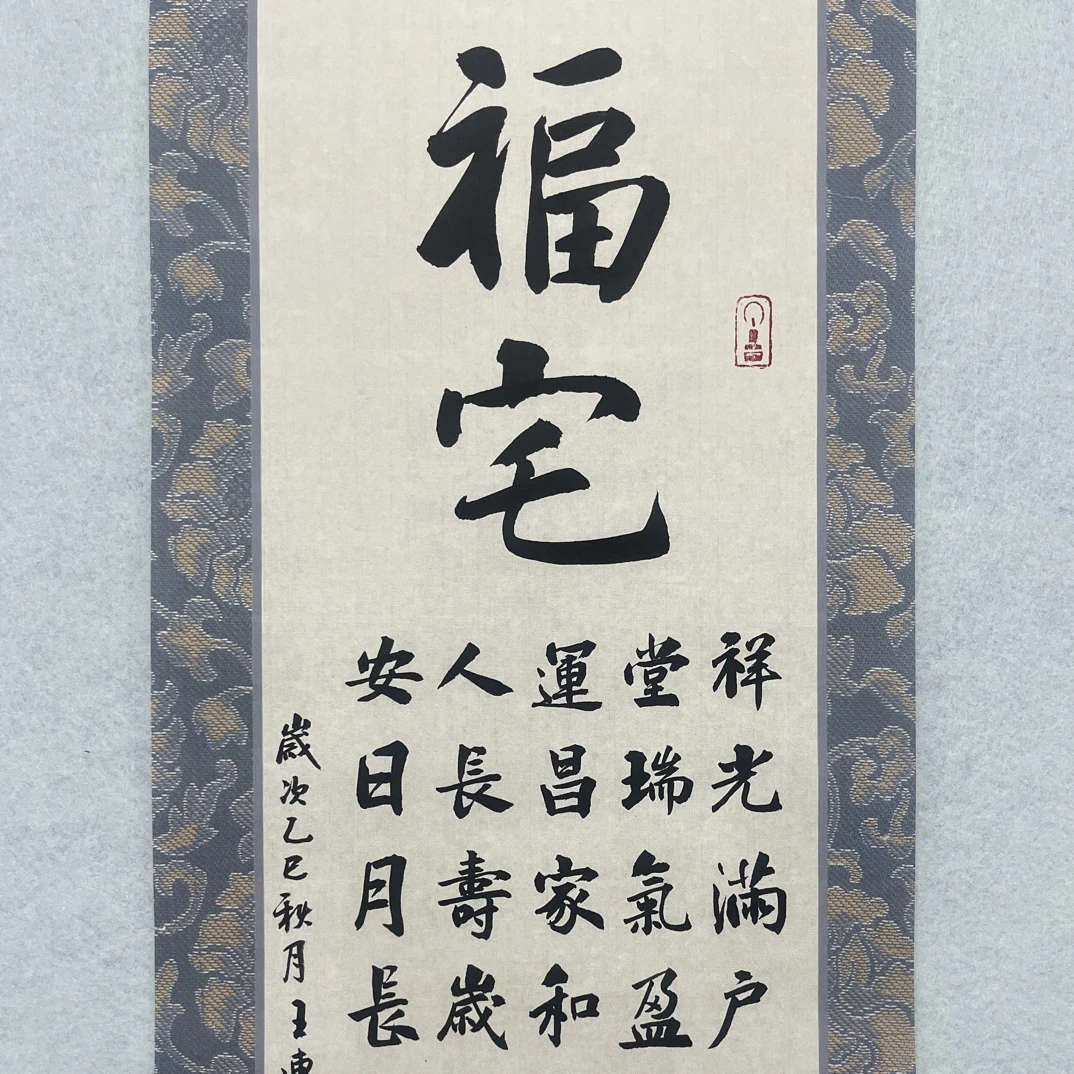 福宅
祥光滿户
堂瑞氣盈
運昌家和
人長壽歲
安日月長
歲次乙巳秋月王